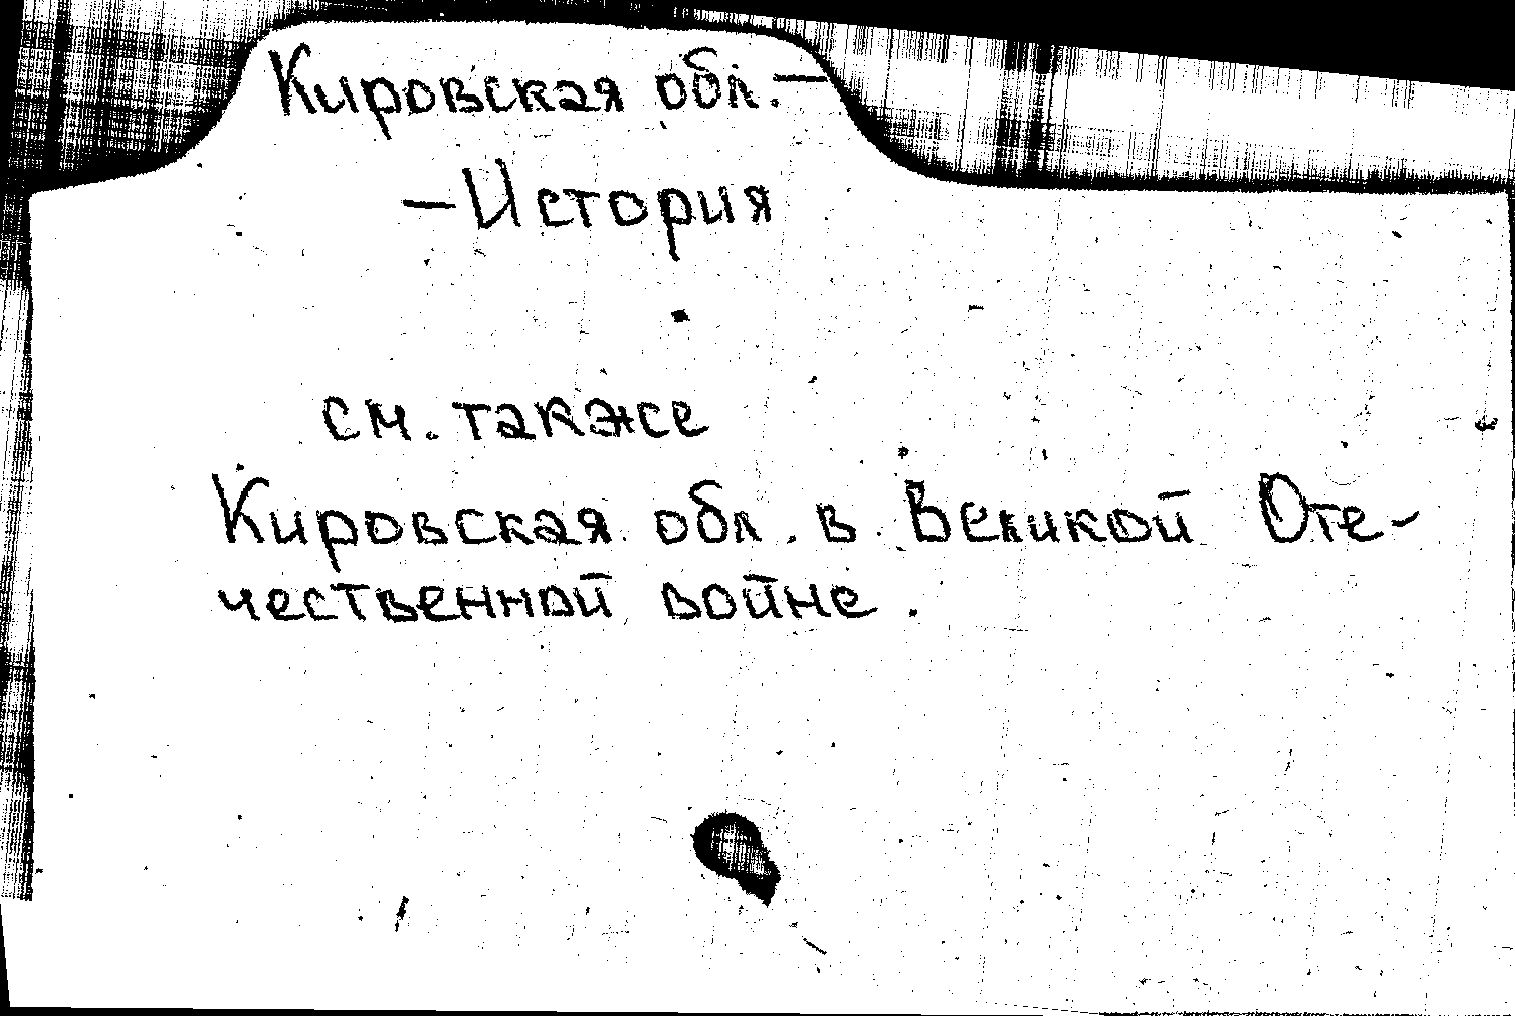 Кировская обл. —
— История
см. также
Кировская обл. в Великой Оте-
чественной войне.